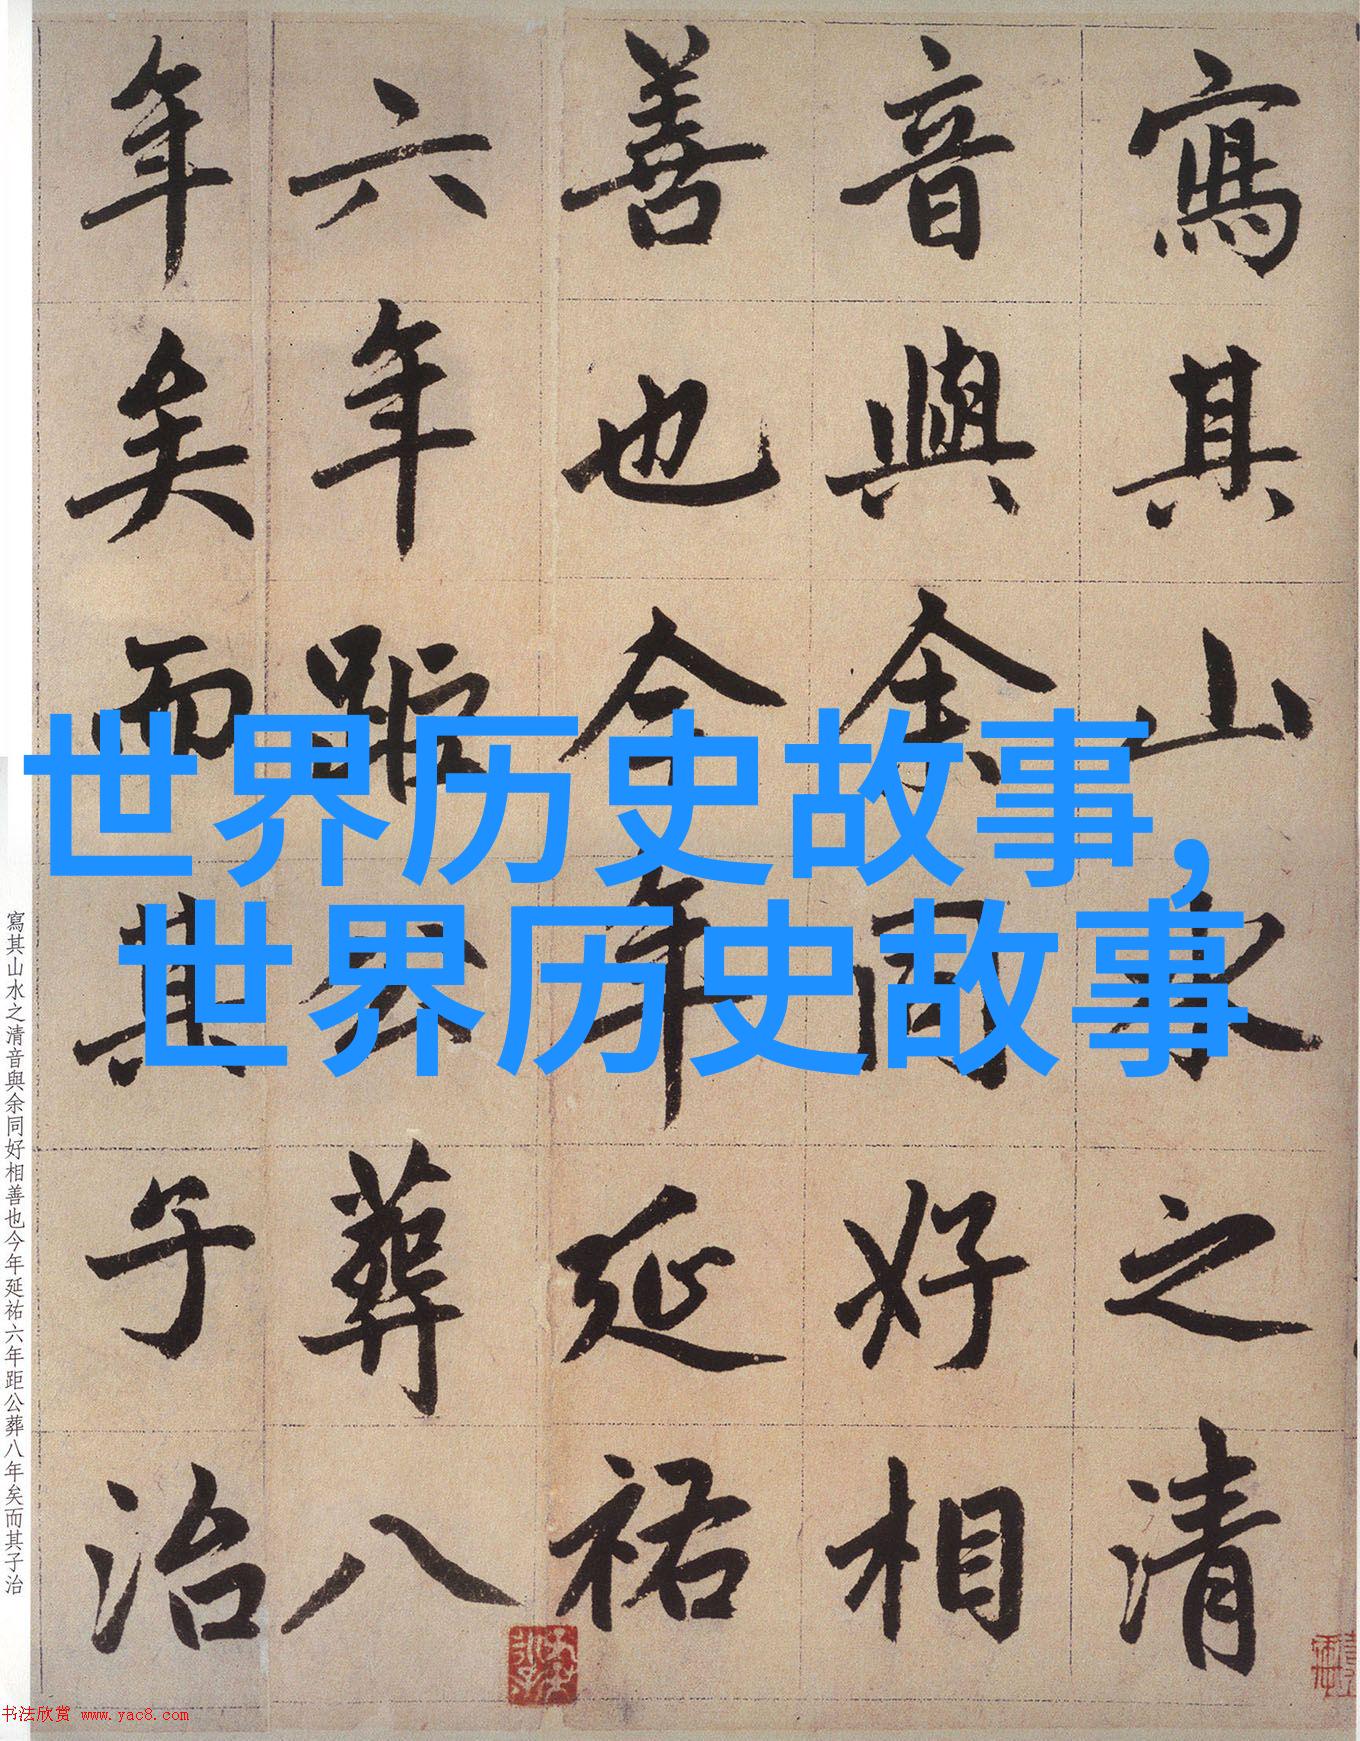 寫其山水之清
音與余同好相
善也今年延祐
六年距公葬八
年矣而其子治
世界历史故事,
世界历史故事
寫其山水之清音與余同好相善也今年延祐六年距公葬八年矣而其子治
书法欣赏 www.yac8.com